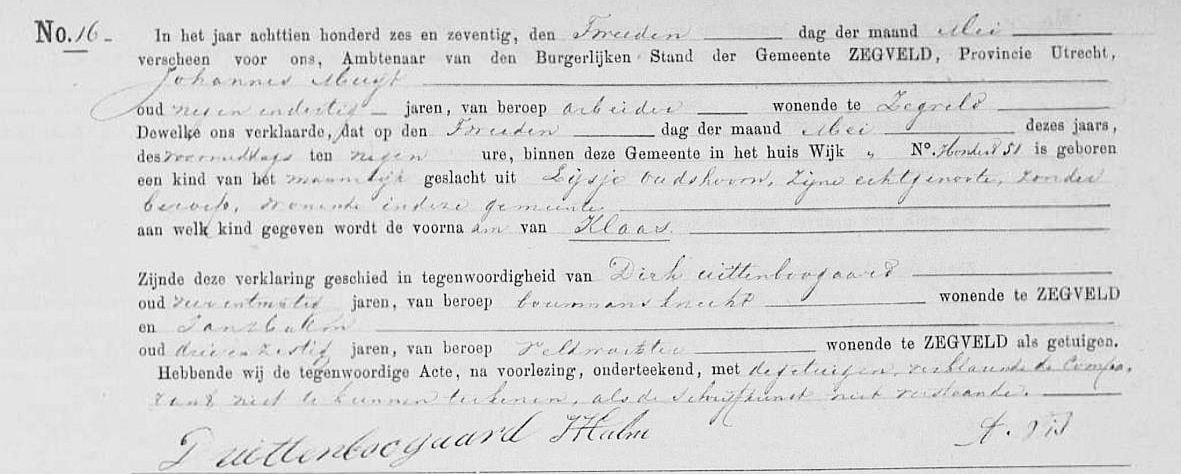 No. 16 - In het jaar achttien honderd zes en zeventig, den Tweeden dag der maand Mei
verscheen voor ons, Ambtenaar van den Burgerlijken Stand der Gemeente ZEGVELD, Provincie Utrecht,
Johannes
oud negen en dertig jaren, van beroep arbeider wonende te Zegveld
Dewelke ons verklaarde, dat op den Tweeden dag der maand Mei dezes jaars,
des voormiddags ten negen ure, binnen deze Gemeente in het huis Wijk „ No. Honderd 51 is geboren
een kind van het mannelijk geslacht uit Eijsje Oudshoorn, zijne echtgenoote, zonder
beroep, wonende in deze gemeente
aan welk kind gegeven wordt de voornaam van Klaas
Zijnde deze verklaring geschied in tegenwoordigheid van Dirk uittenboogaard
oud jaren, van beroep bouwmansknecht wonende te ZEGVELD
en Jan Halm
oud drie en zestig jaren, van beroep veldwachter wonende te ZEGVELD als getuigen.
Hebbende wij de tegenwoordige Acte, na voorlezing, onderteekend, met de getuigen, verklarende de Compa,
rant niet te kunnen teekenen, als de schrijfkunst niet verstaande.
D uittenboogaard JHalm